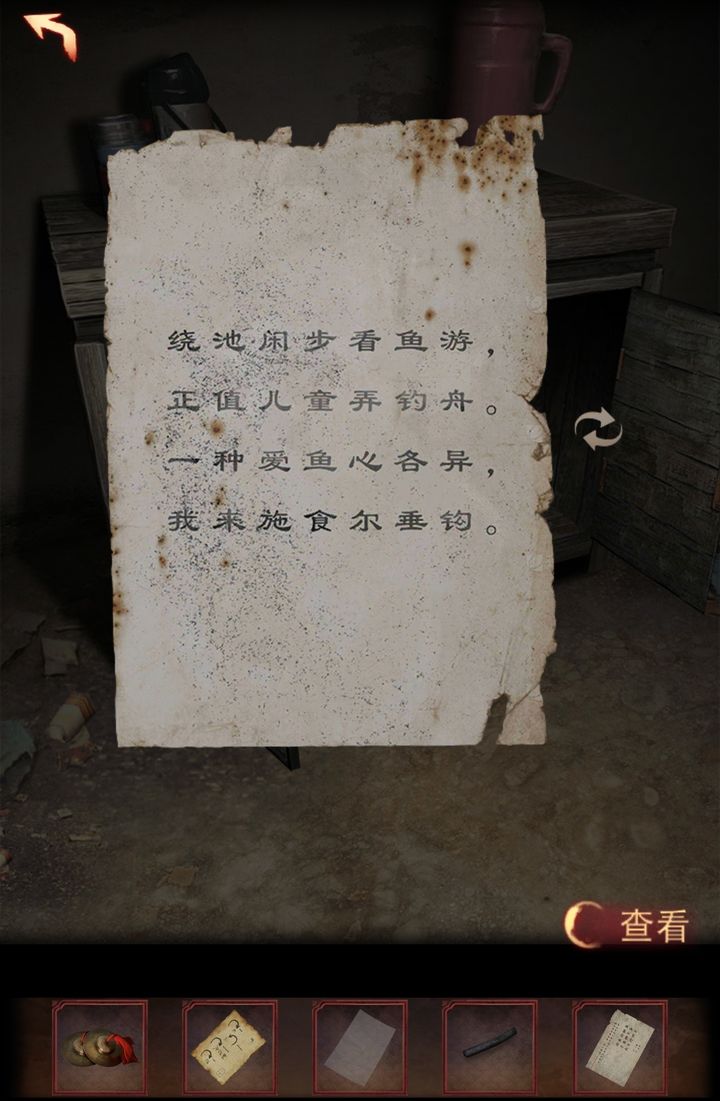 绕池闲步看鱼游，
正值儿童弄钓舟。
一种爱鱼心各异，
我来施食尔垂钩。
查看